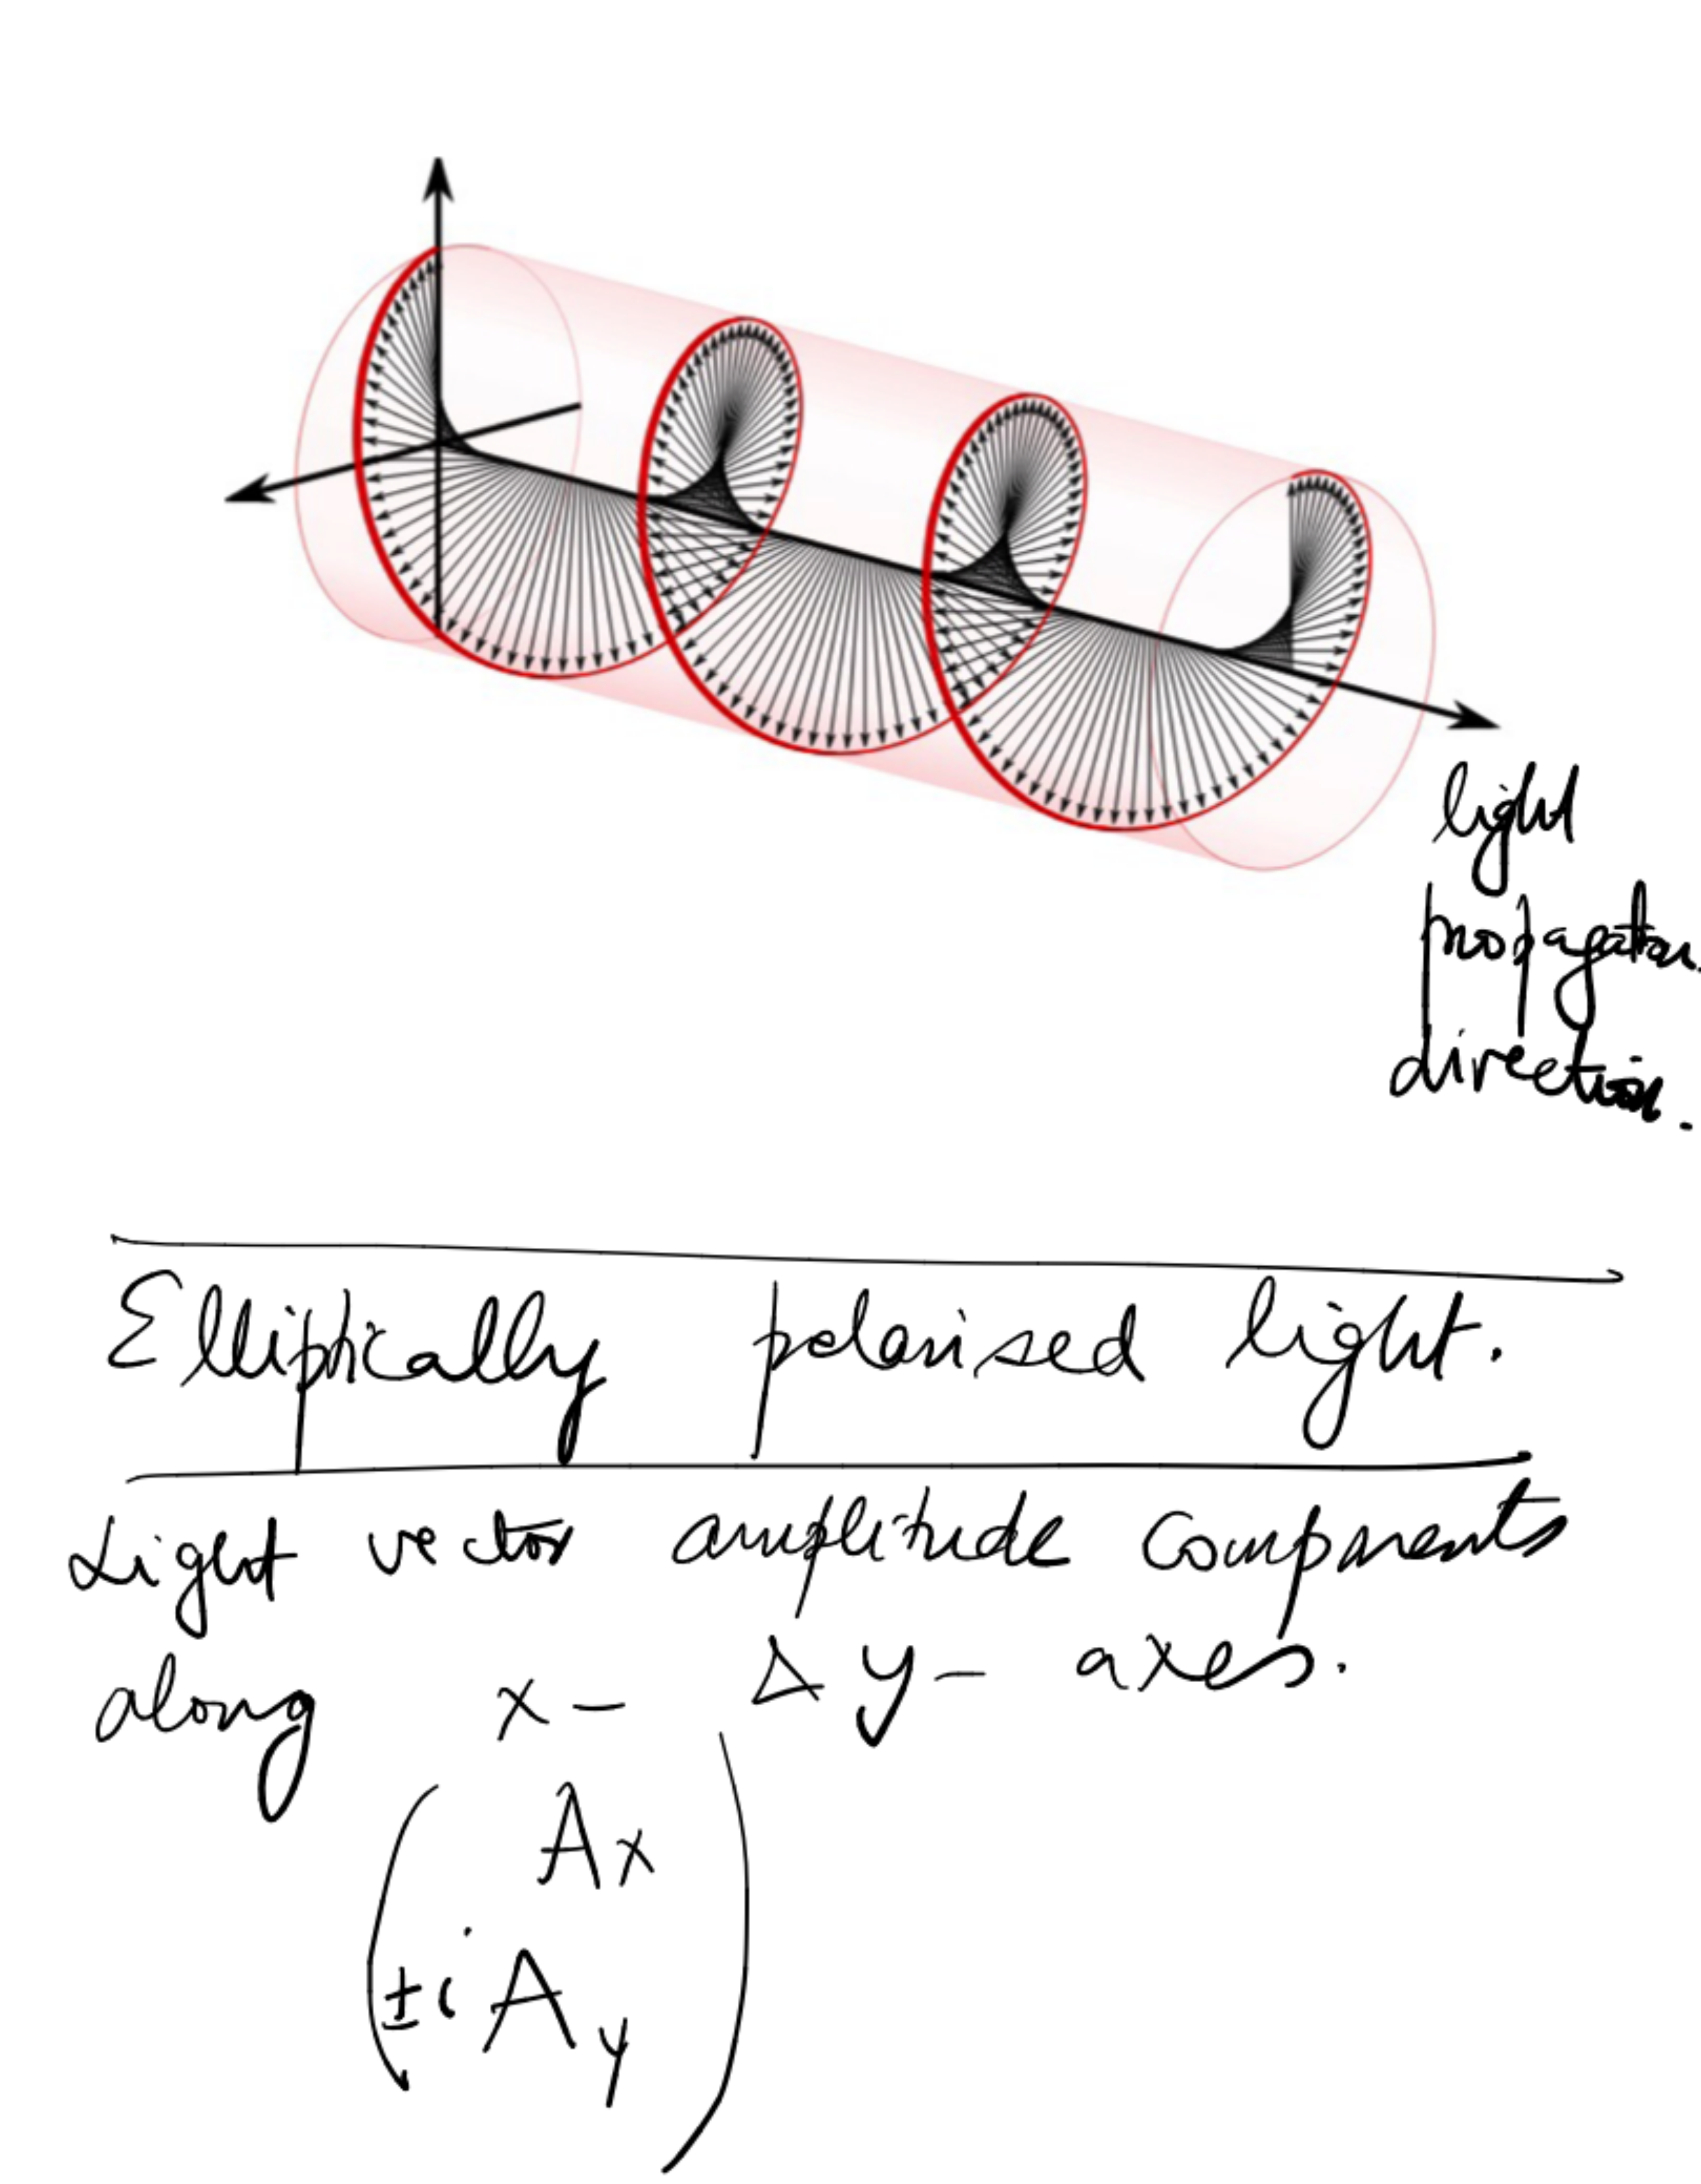 light
propagation
direction.
Elliptically polarised light.
Light vector amplitude components
along x- & y- axes.
( Ax
±i Ay )